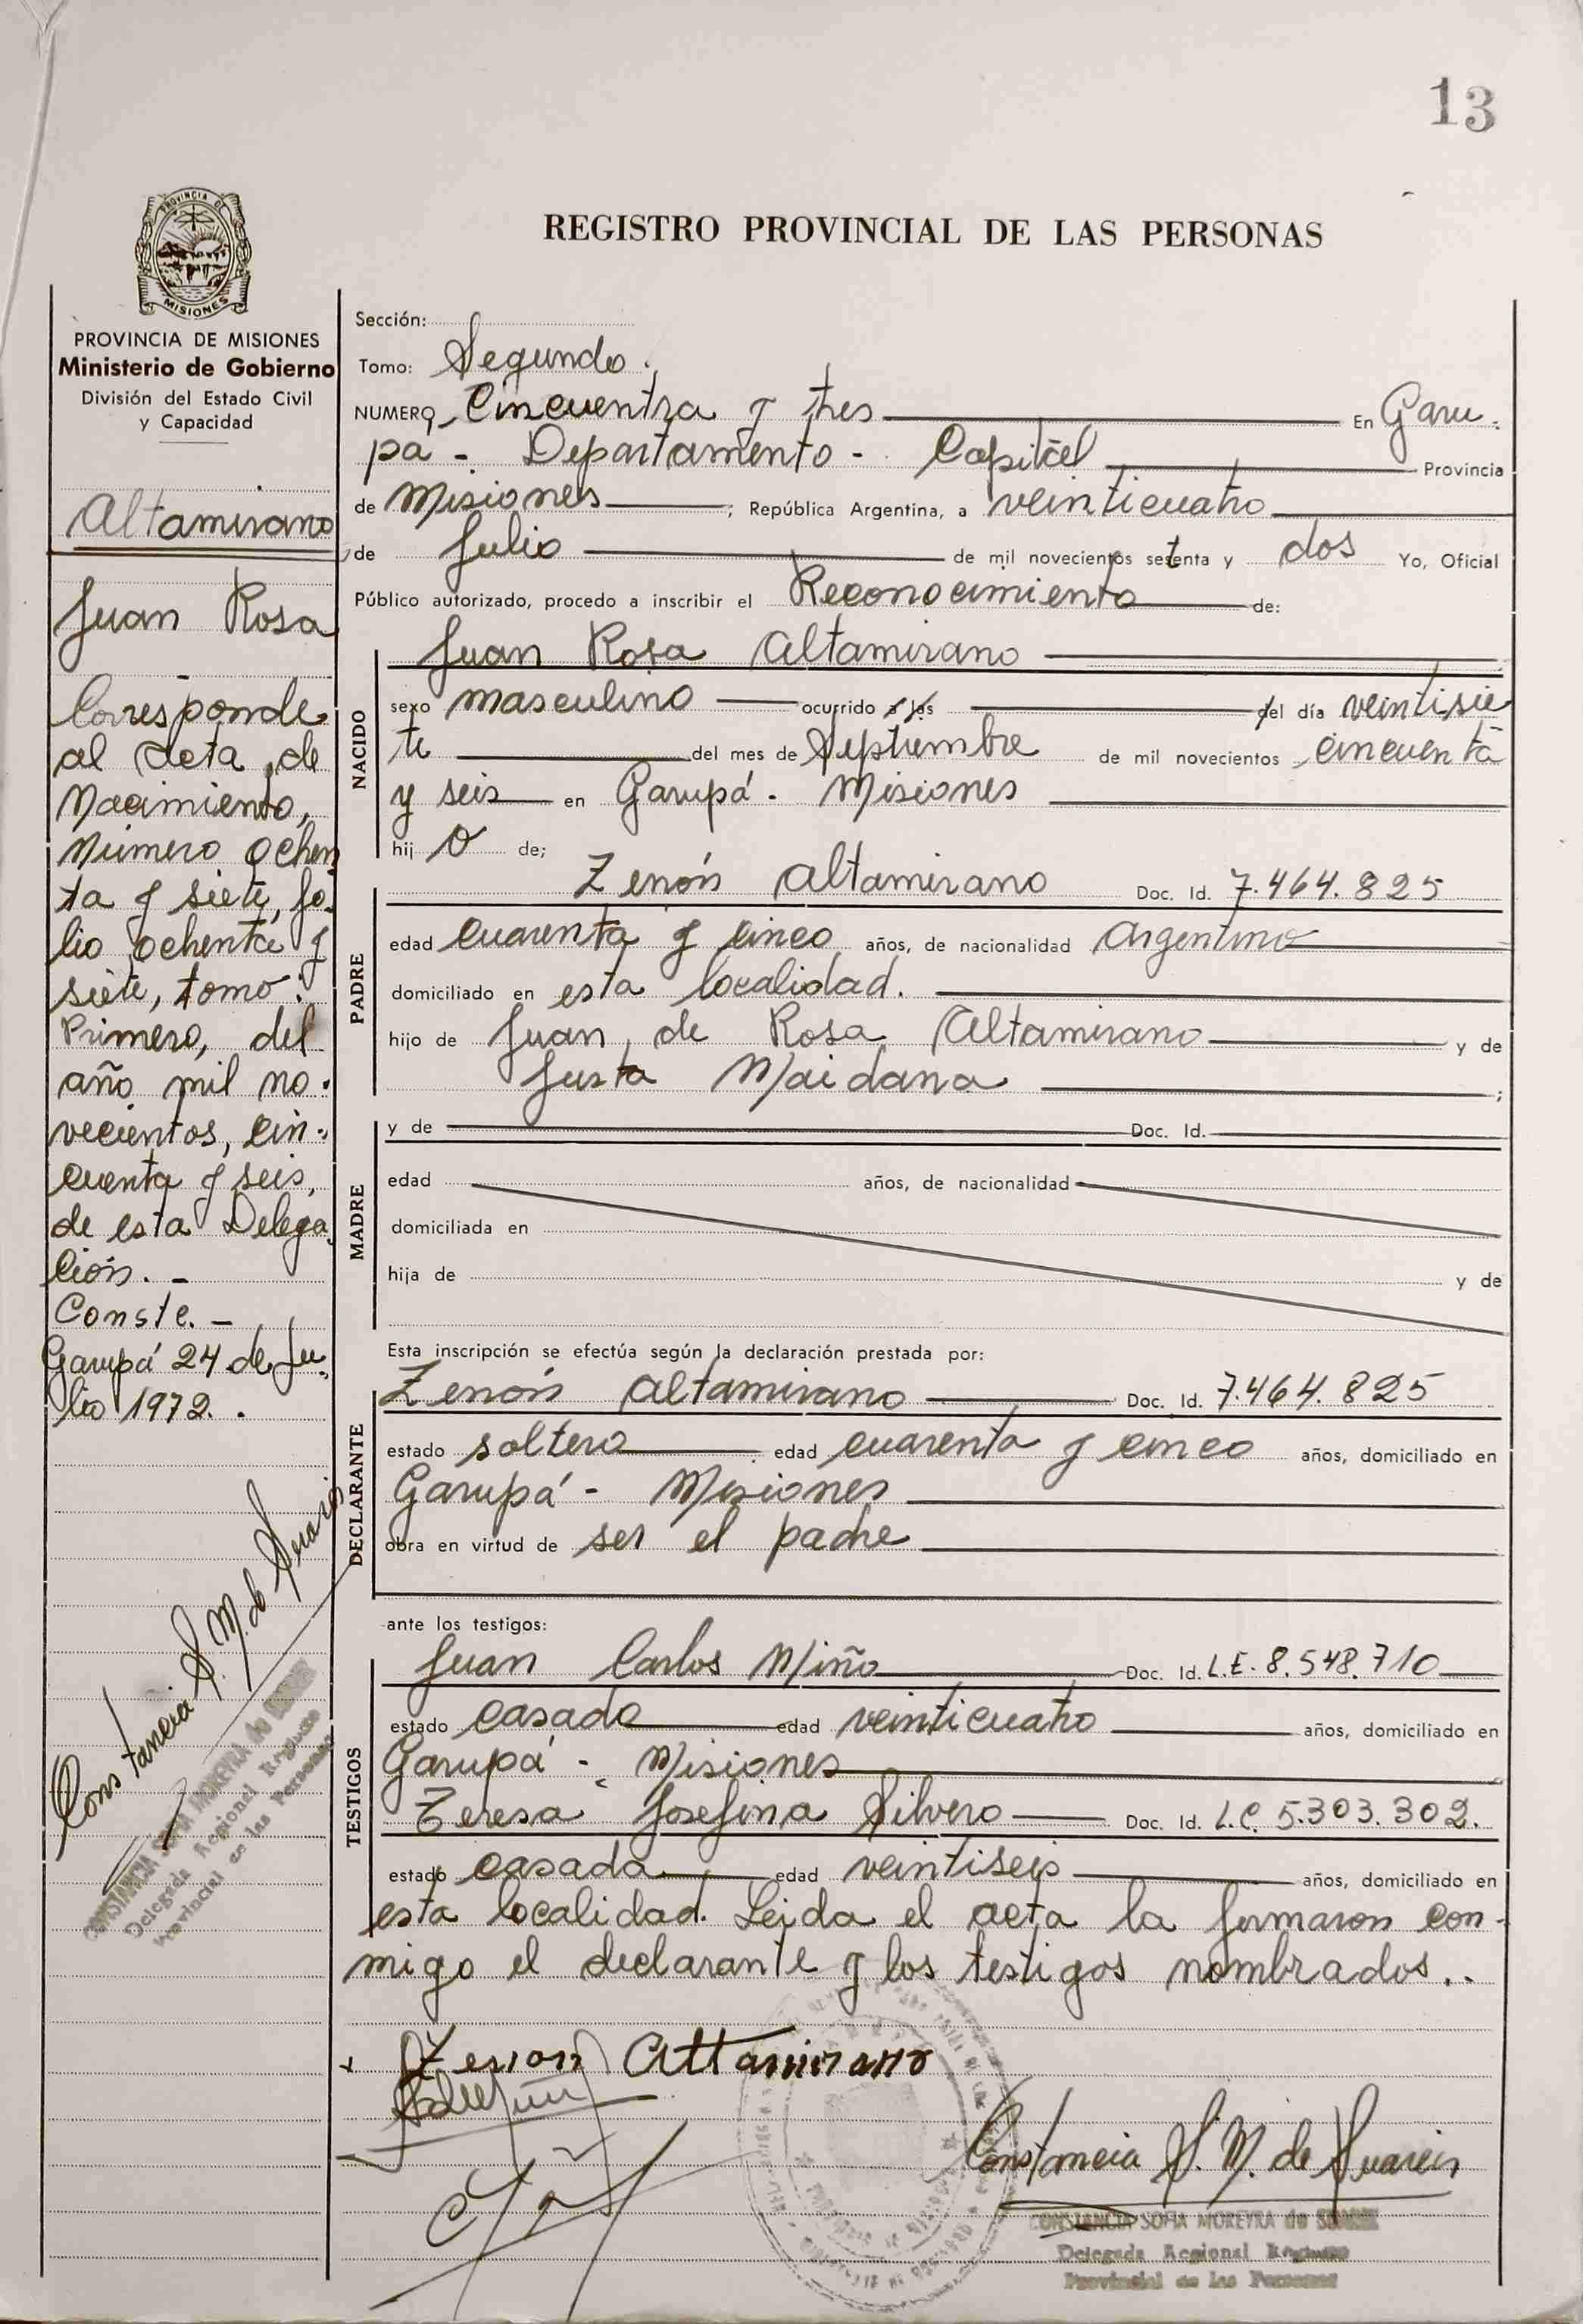 13
REGISTRO PROVINCIAL DE LAS PERSONAS
PROVINCIA DE
MISIONES
PROVINCIA DE MISIONES
Ministerio de Gobierno
División del Estado Civil
y Capacidad
Altamirano
Juan Rosa
Corresponde
al acta de
Nacimiento,
Número ochen
ta y siete, fo-
lio ochenta y
siete, tomo:
Primero, del
año mil no-
vecientos, cin-
cuenta y seis,
de esta Delega
ción. -
Conste. -
Garupá 24 de Ju-
lio 1972. .
Constancia S. M. de Suarez
CONSTANCIA SOFIA MOREYRA de
Delegada Regional Registro
Provincial de las Personas
Sección:
Tomo: Segundo.
NUMERO, Cincuentra y tres En Garu-
pá - Departamento - Capital Provincia
de Misiones ; República Argentina, a veinticuatro
de Julio de mil novecientos setenta y dos Yo, Oficial
Público autorizado, procedo a inscribir el Reconocimiento de:
NACIDO
Juan Rosa Altamirano
sexo masculino ocurrido a las del día veintisie
te del mes de Septiembre de mil novecientos cincuenta
y seis en Garupá - Misiones
hij o de;
PADRE
Zenón Altamirano Doc. Id. 7.464.825
edad cuarenta y cinco años, de nacionalidad Argentino
domiciliado en esta localidad.
hijo de Juan de Rosa Altamirano y de
Justa Maidana ;
MADRE
y de Doc. Id.
edad años, de nacionalidad
domiciliada en
hija de y de
Esta inscripción se efectúa según la declaración prestada por:
DECLARANTE
Zenón Altamirano Doc. Id. 7.464.825
estado soltero edad cuarenta y cinco años, domiciliado en
Garupá - Misiones
obra en virtud de ser el padre
ante los testigos:
TESTIGOS
Juan Carlos Miño Doc. Id. L.E. 8.548.710
estado casado edad veinticuatro años, domiciliado en
Garupá - Misiones
Teresa Josefina Silvero Doc. Id. L.C. 5.303.302.
estado casada edad veintiseis años, domiciliado en
esta localidad. Leída el acta la firmaron con-
migo el declarante y los testigos nombrados..
x Zenon Altamirano
Constancia S. M. de Suarez
CONSTANCIA SOFIA MOREYRA de
Delegada Regional Registro
Provincial de las Personas